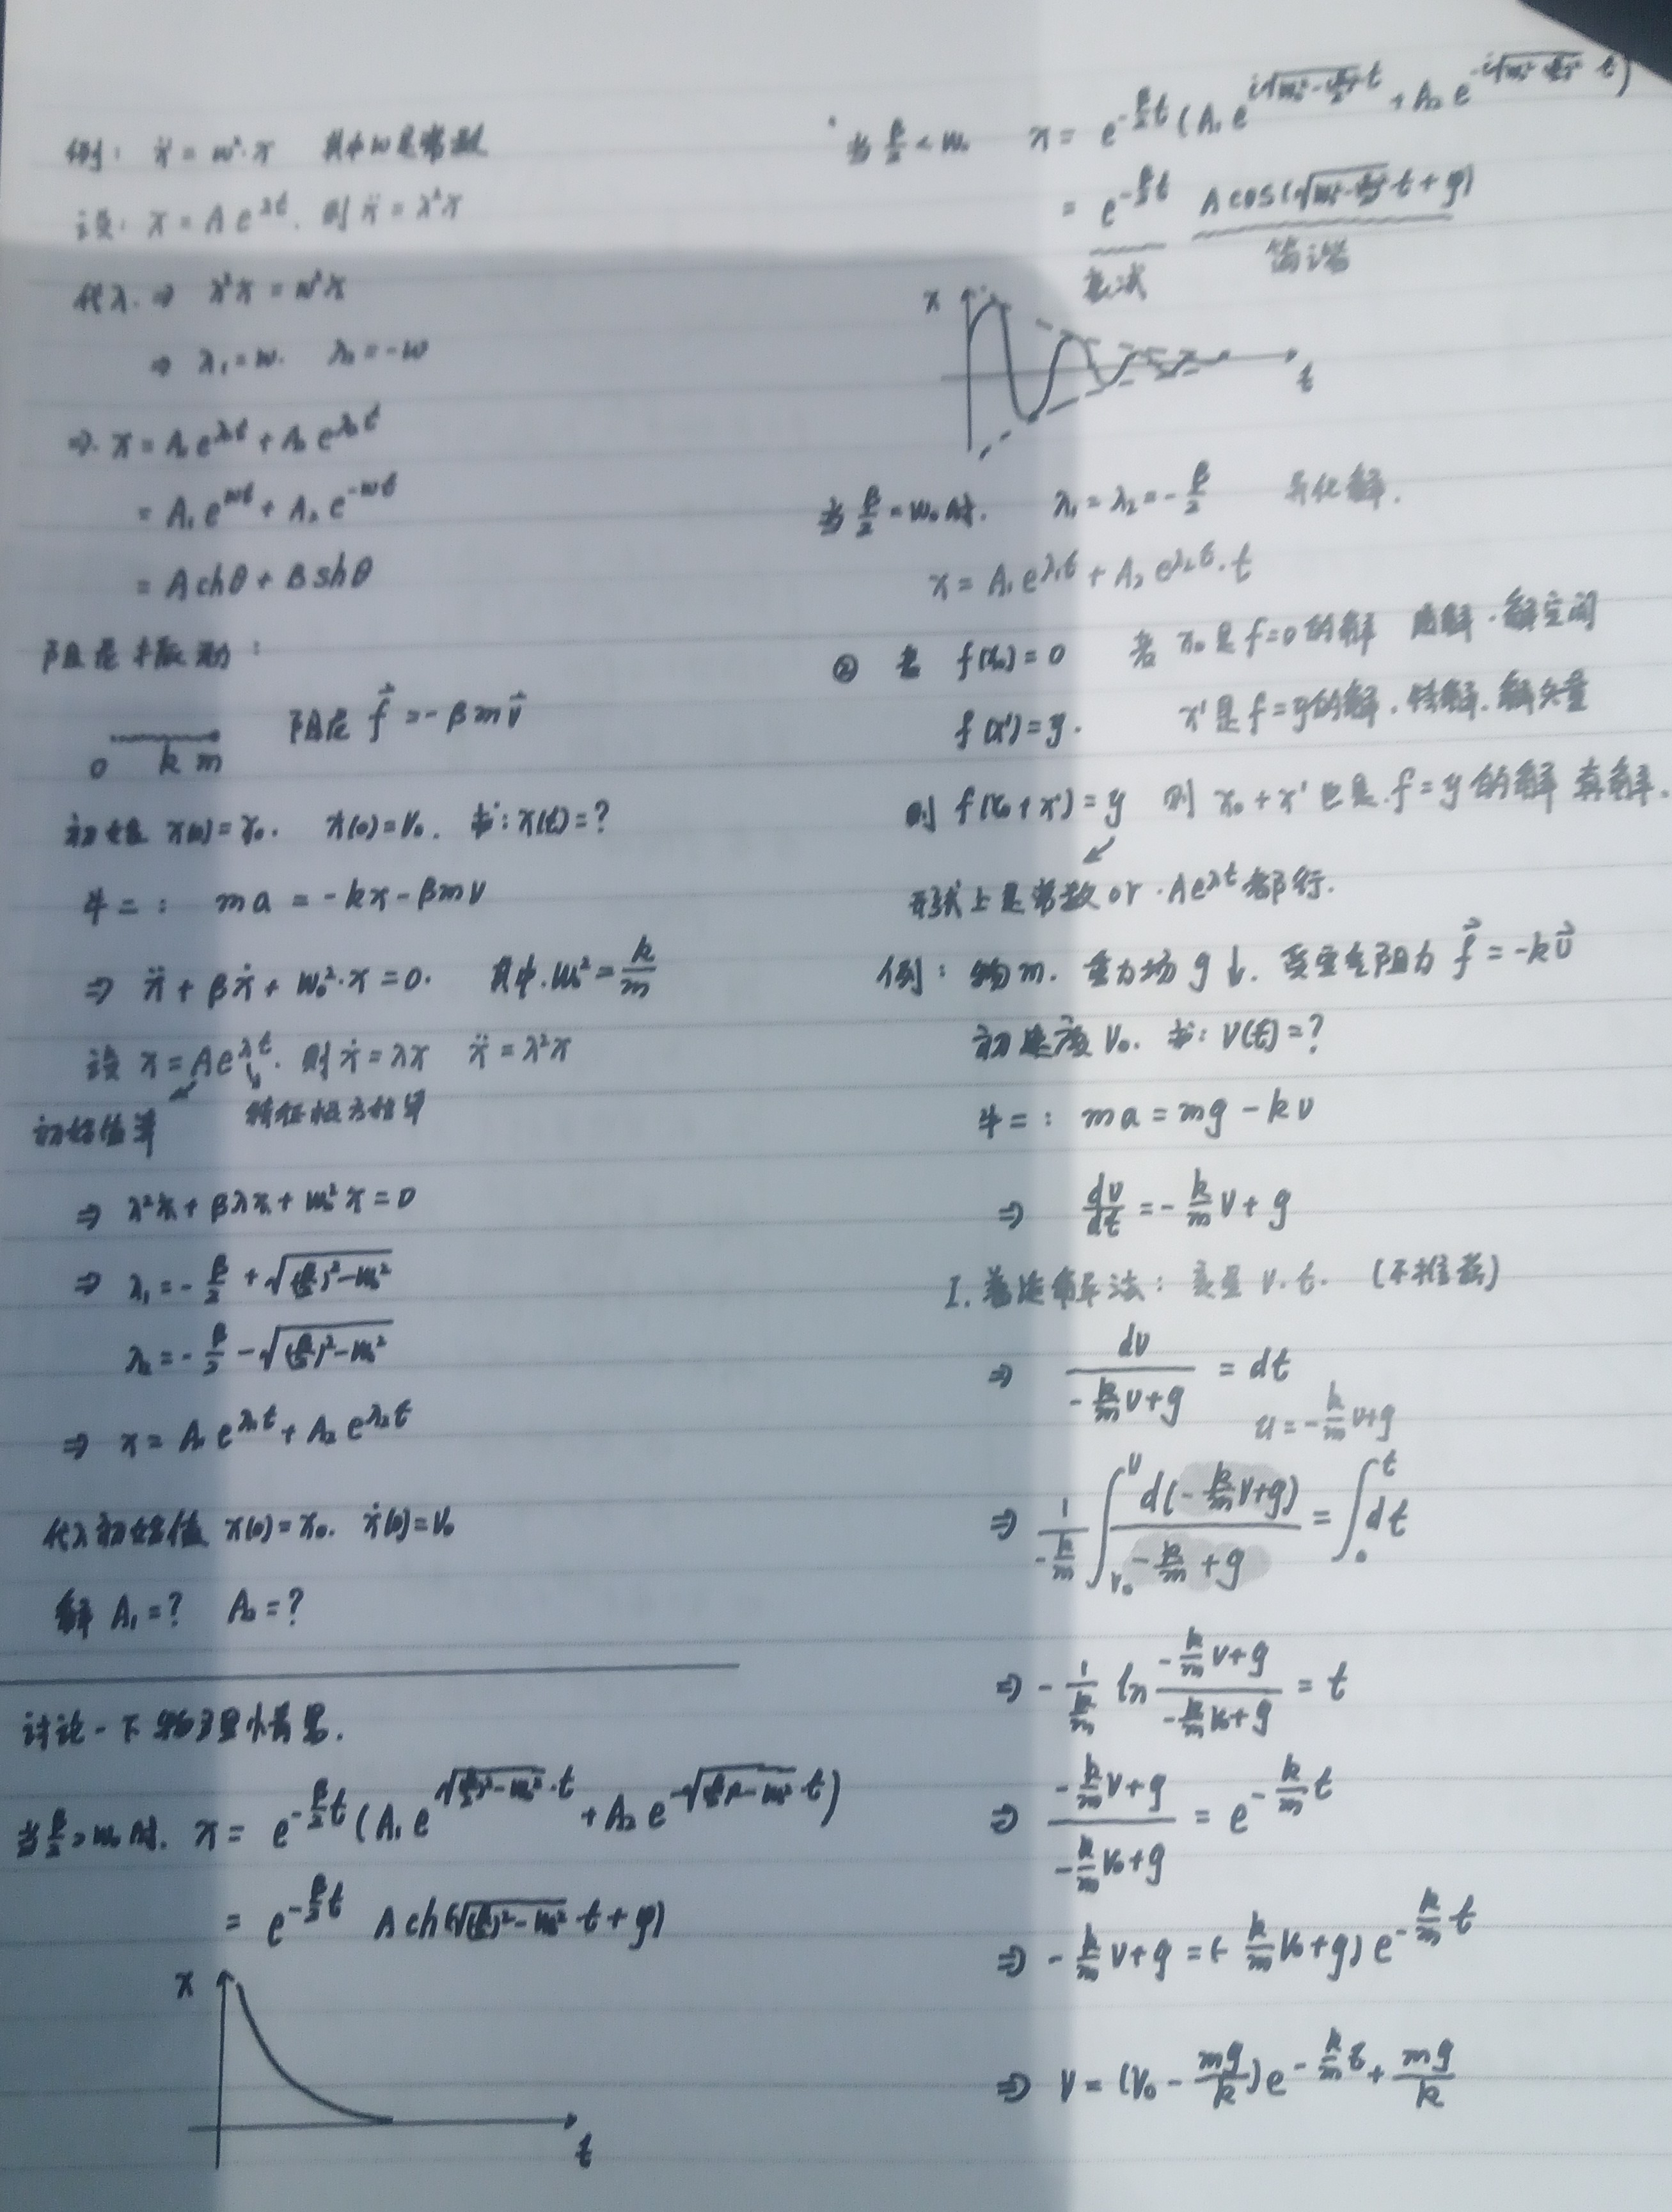 例: ẍ = w²·x 其中w是常数
设: x = A e^{λt}. 则 ẍ = λ²x
代入. ⇒ λ²x = w²x
⇒ λ₁ = w. λ₂ = -w
⇒. x = A₁e^{λ₁t} + A₂e^{λ₂t}
= A₁e^{wt} + A₂e^{-wt}
= A chθ + B shθ
阻尼振动:
0 k m 阻尼 f⃗ = -βmv⃗
初始值 x(0)=x₀. ẋ(0)=V₀. 求: x(t)=?
牛二: ma = -kx - βmv
⇒ ẍ + βẋ + w₀²·x = 0. 其中. w₀² = k/m
设 x = Ae^{λt}. 则 ẋ = λx ẍ = λ²x
初始值算 特征根方程算
⇒ λ²x + βλx + w₀²x = 0
⇒ λ₁ = -β/2 + √((β/2)² - w₀²)
λ₂ = -β/2 - √((β/2)² - w₀²)
⇒ x = A₁e^{λ₁t} + A₂e^{λ₂t}
代入初始值 x(0)=x₀. ẋ(0)=V₀
解 A₁=? A₂=?
讨论一下物理情景.
当 β/2 > w₀ 时. x = e^{-β/2 t}(A₁e^{√((β/2)²-w₀²)·t} + A₂e^{-√((β/2)²-w₀²)·t})
= e^{-β/2 t} A ch(√((β/2)²-w₀²)·t+φ)
x
t
当 β/2 < w₀ x = e^{-β/2 t}(A₁e^{i√(w₀²-(β/2)²)t} + A₂e^{-i√(w₀²-(β/2)²)t})
= e^{-β/2 t} A cos(√(w₀²-(β/2)²)t+φ)
衰减 简谐
x
t
当 β/2 = w₀ 时. λ₁ = λ₂ = -β/2 异化解.
x = A₁e^{λ₁t} + A₂e^{λ₂t}·t
② 若 f(x₀)=0 若 x₀是f=0的解 通解·解空间
f(x')=y. x'是f=y的解. 特解. 解矢量
则 f(x₀+x')=y 则 x₀+x'也是.f=y的解 真解.
形式上是常数 or ·Ae^{λt}都行.
例: 物m. 重力场g↓. 受空气阻力 f⃗ = -kv⃗
初速度V₀. 求: V(t)=?
牛二: ma = mg - kv
⇒ dv/dt = -k/m v + g
I. 普通解法: 变量 v. t. (不推荐)
⇒ dv/(-k/m v+g) = dt
u = -k/m v+g
⇒ 1/(-k/m) ∫_{v₀}^{v} d(-k/m v+g)/(-k/m+g) = ∫_0^t dt
⇒ -1/(k/m) ln (-k/m v+g)/(-k/m v₀+g) = t
⇒ (-k/m v+g)/(-k/m v₀+g) = e^{-k/m t}
⇒ -k/m v+g = (-k/m v₀+g) e^{-k/m t}
⇒ v = (v₀ - mg/k) e^{-k/m t} + mg/k